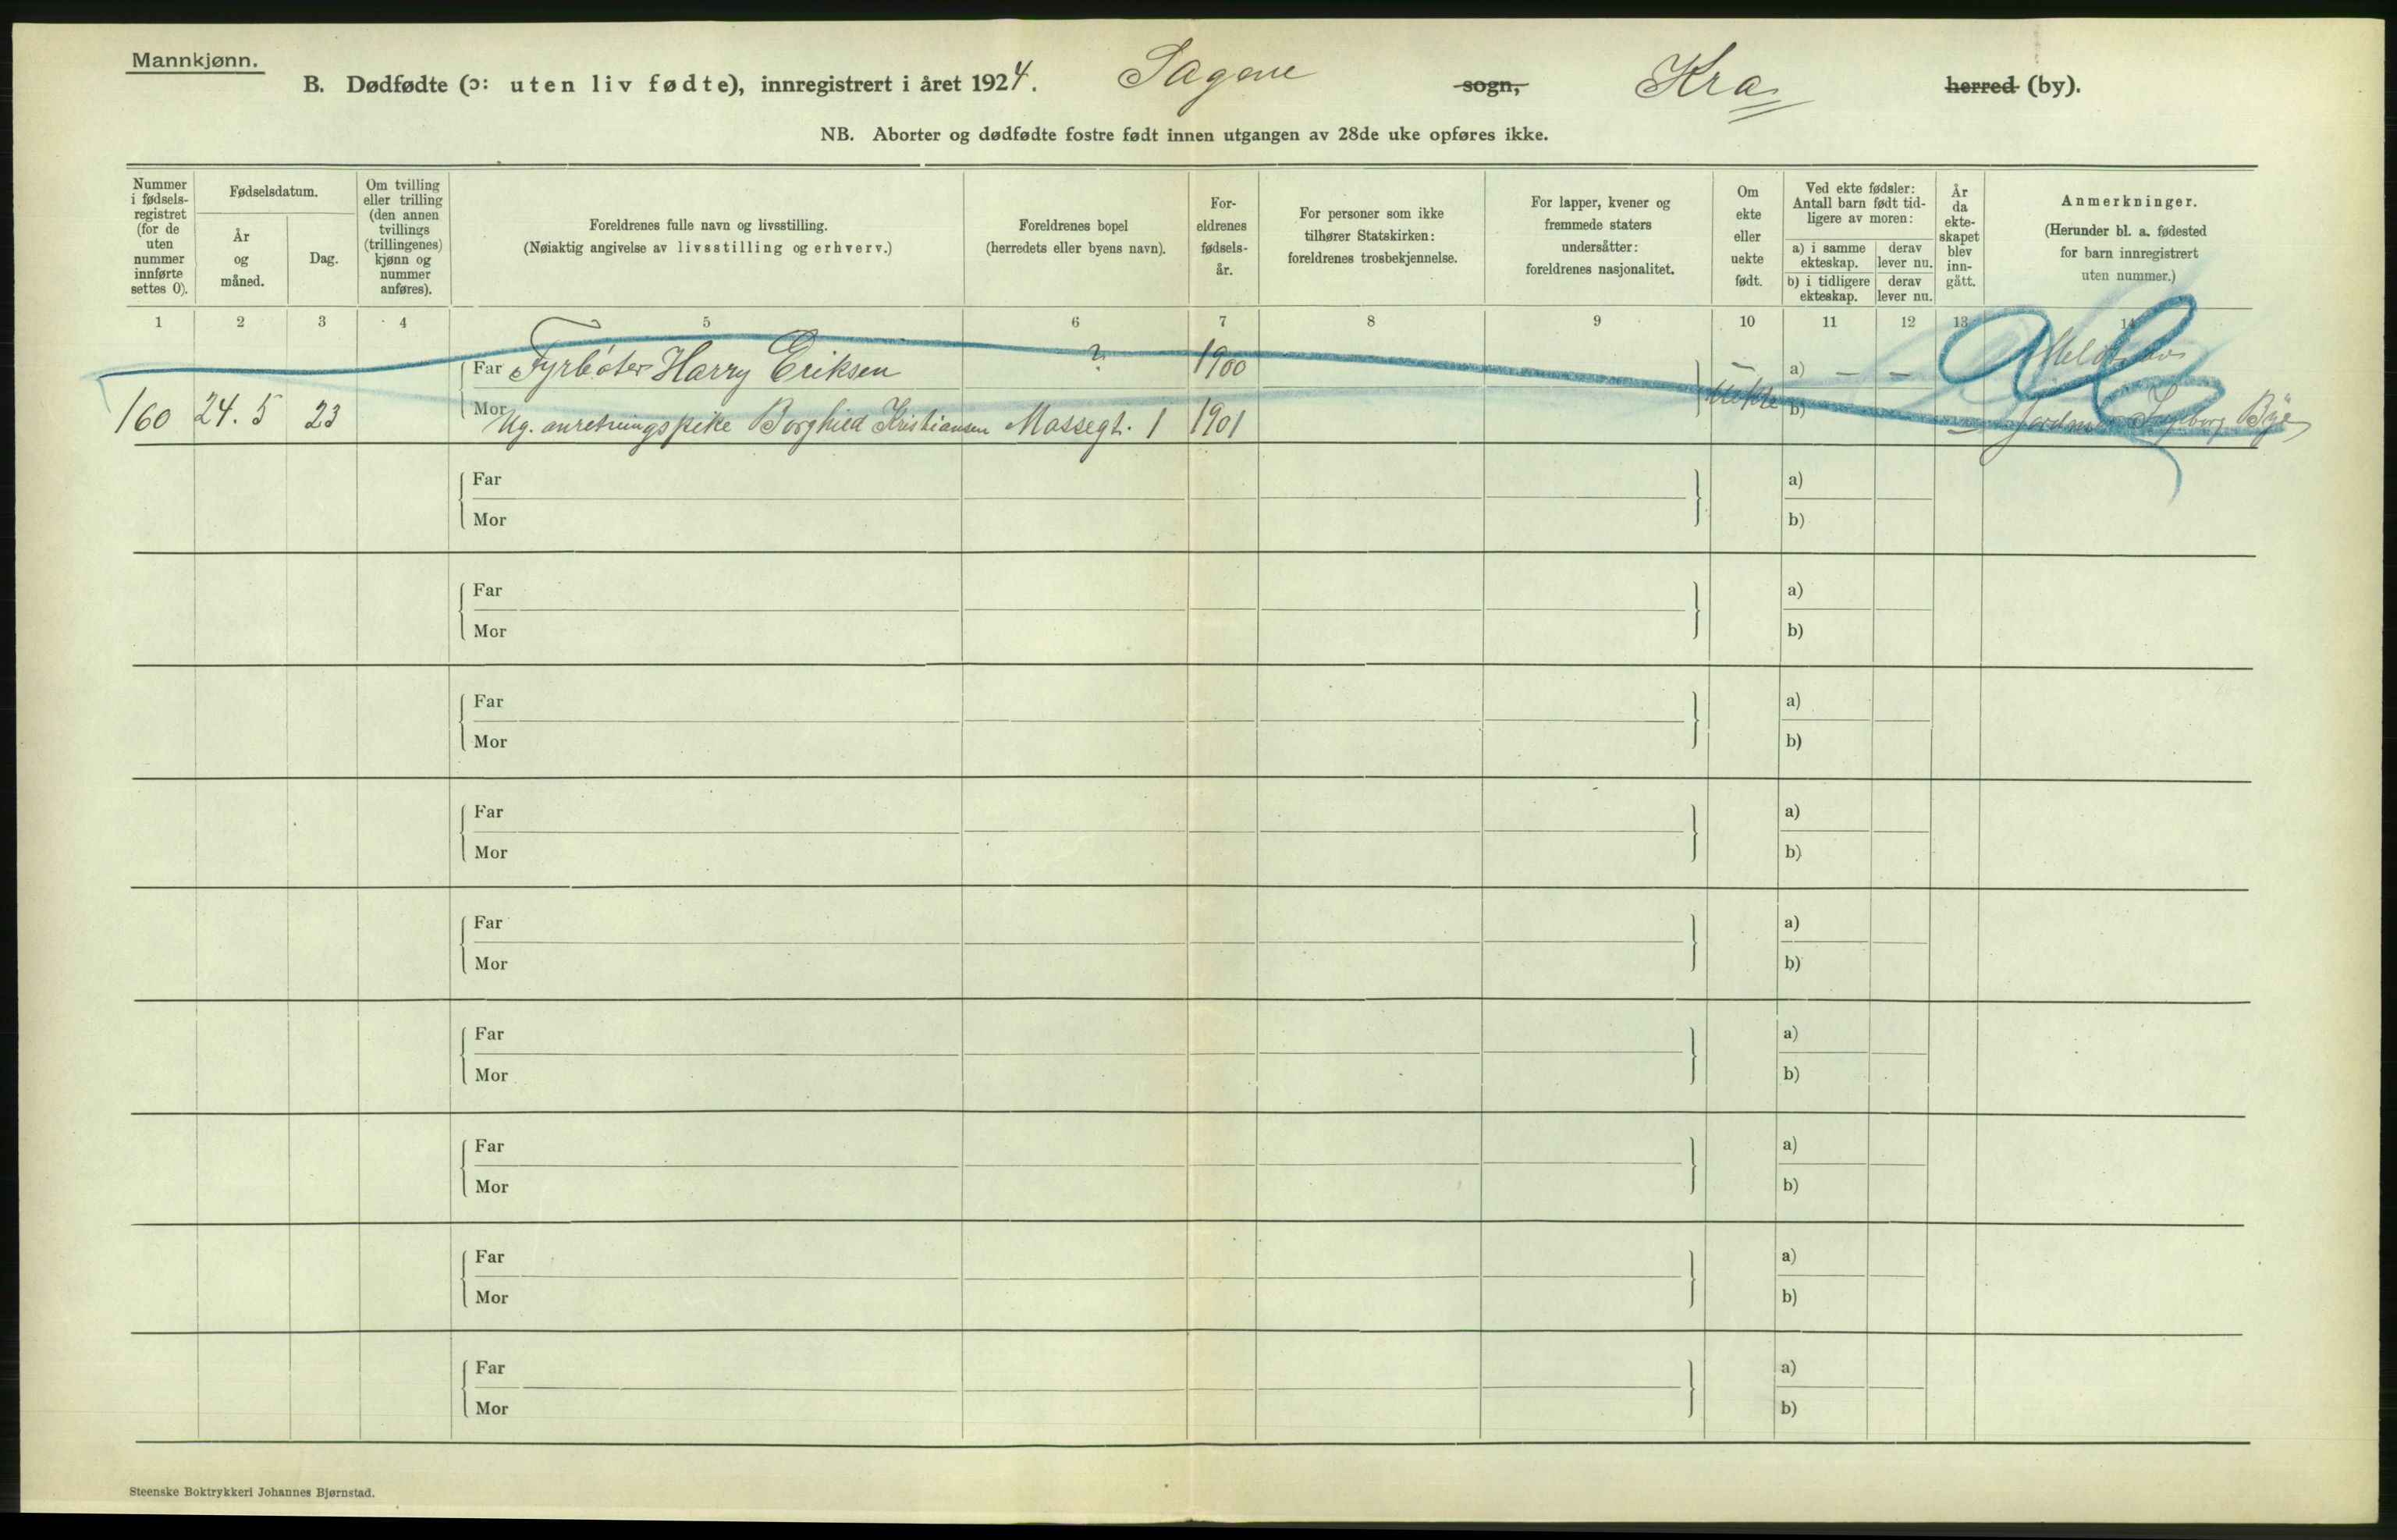 Mannkjønn.
B. Dødfødte (ɔ: uten liv fødte), innregistrert i året 1924. Sagene sogn, Kra herred (by).
NB. Aborter og dødfødte fostre født innen utgangen av 28de uke opføres ikke.
Nummer
i fødsels-
registret
(for de
uten
nummer
innførte
settes 0).
Fødselsdatum.
År
og
måned.
Dag.
Om tvilling
eller trilling
(den annen
tvillings
(trillingenes)
kjønn og
nummer
anføres).
Foreldrenes fulle navn og livsstilling.
(Nøiaktig angivelse av livsstilling og erhverv.)
Foreldrenes bopel
(herredets eller byens navn).
For-
eldrenes
fødsels-
år.
For personer som ikke
tilhører Statskirken:
foreldrenes trosbekjennelse.
For lapper, kvener og
fremmede staters
undersåtter:
foreldrenes nasjonalitet.
Om
ekte
eller
uekte
født.
Ved ekte fødsler:
Antall barn født tid-
ligere av moren:
a) i samme
ekteskap.
derav
lever nu.
b) i tidligere
ekteskap.
derav
lever nu.
År
da
ekte-
skapet
blev
inn-
gått.
Anmerkninger.
(Herunder bl. a. fødested
for barn innregistrert
uten nummer.)
1 2 3 4 5 6 7 8 9 10 11 12 13 14
Far Fyrbøter Harry Eriksen ? 1900 — a) — — Meldt av
160 24. 5 23 Mor Ug. anretningspike Borghild Kristiansen Mossegt. 1 1901 uekte b) — Jordmor Ingeborg Bye
Far a)
Mor b)
Far a)
Mor b)
Far a)
Mor b)
Far a)
Mor b)
Far a)
Mor b)
Far a)
Mor b)
Far a)
Mor b)
Far a)
Mor b)
Far a)
Mor b)
Steenske Boktrykkeri Johannes Bjørnstad.